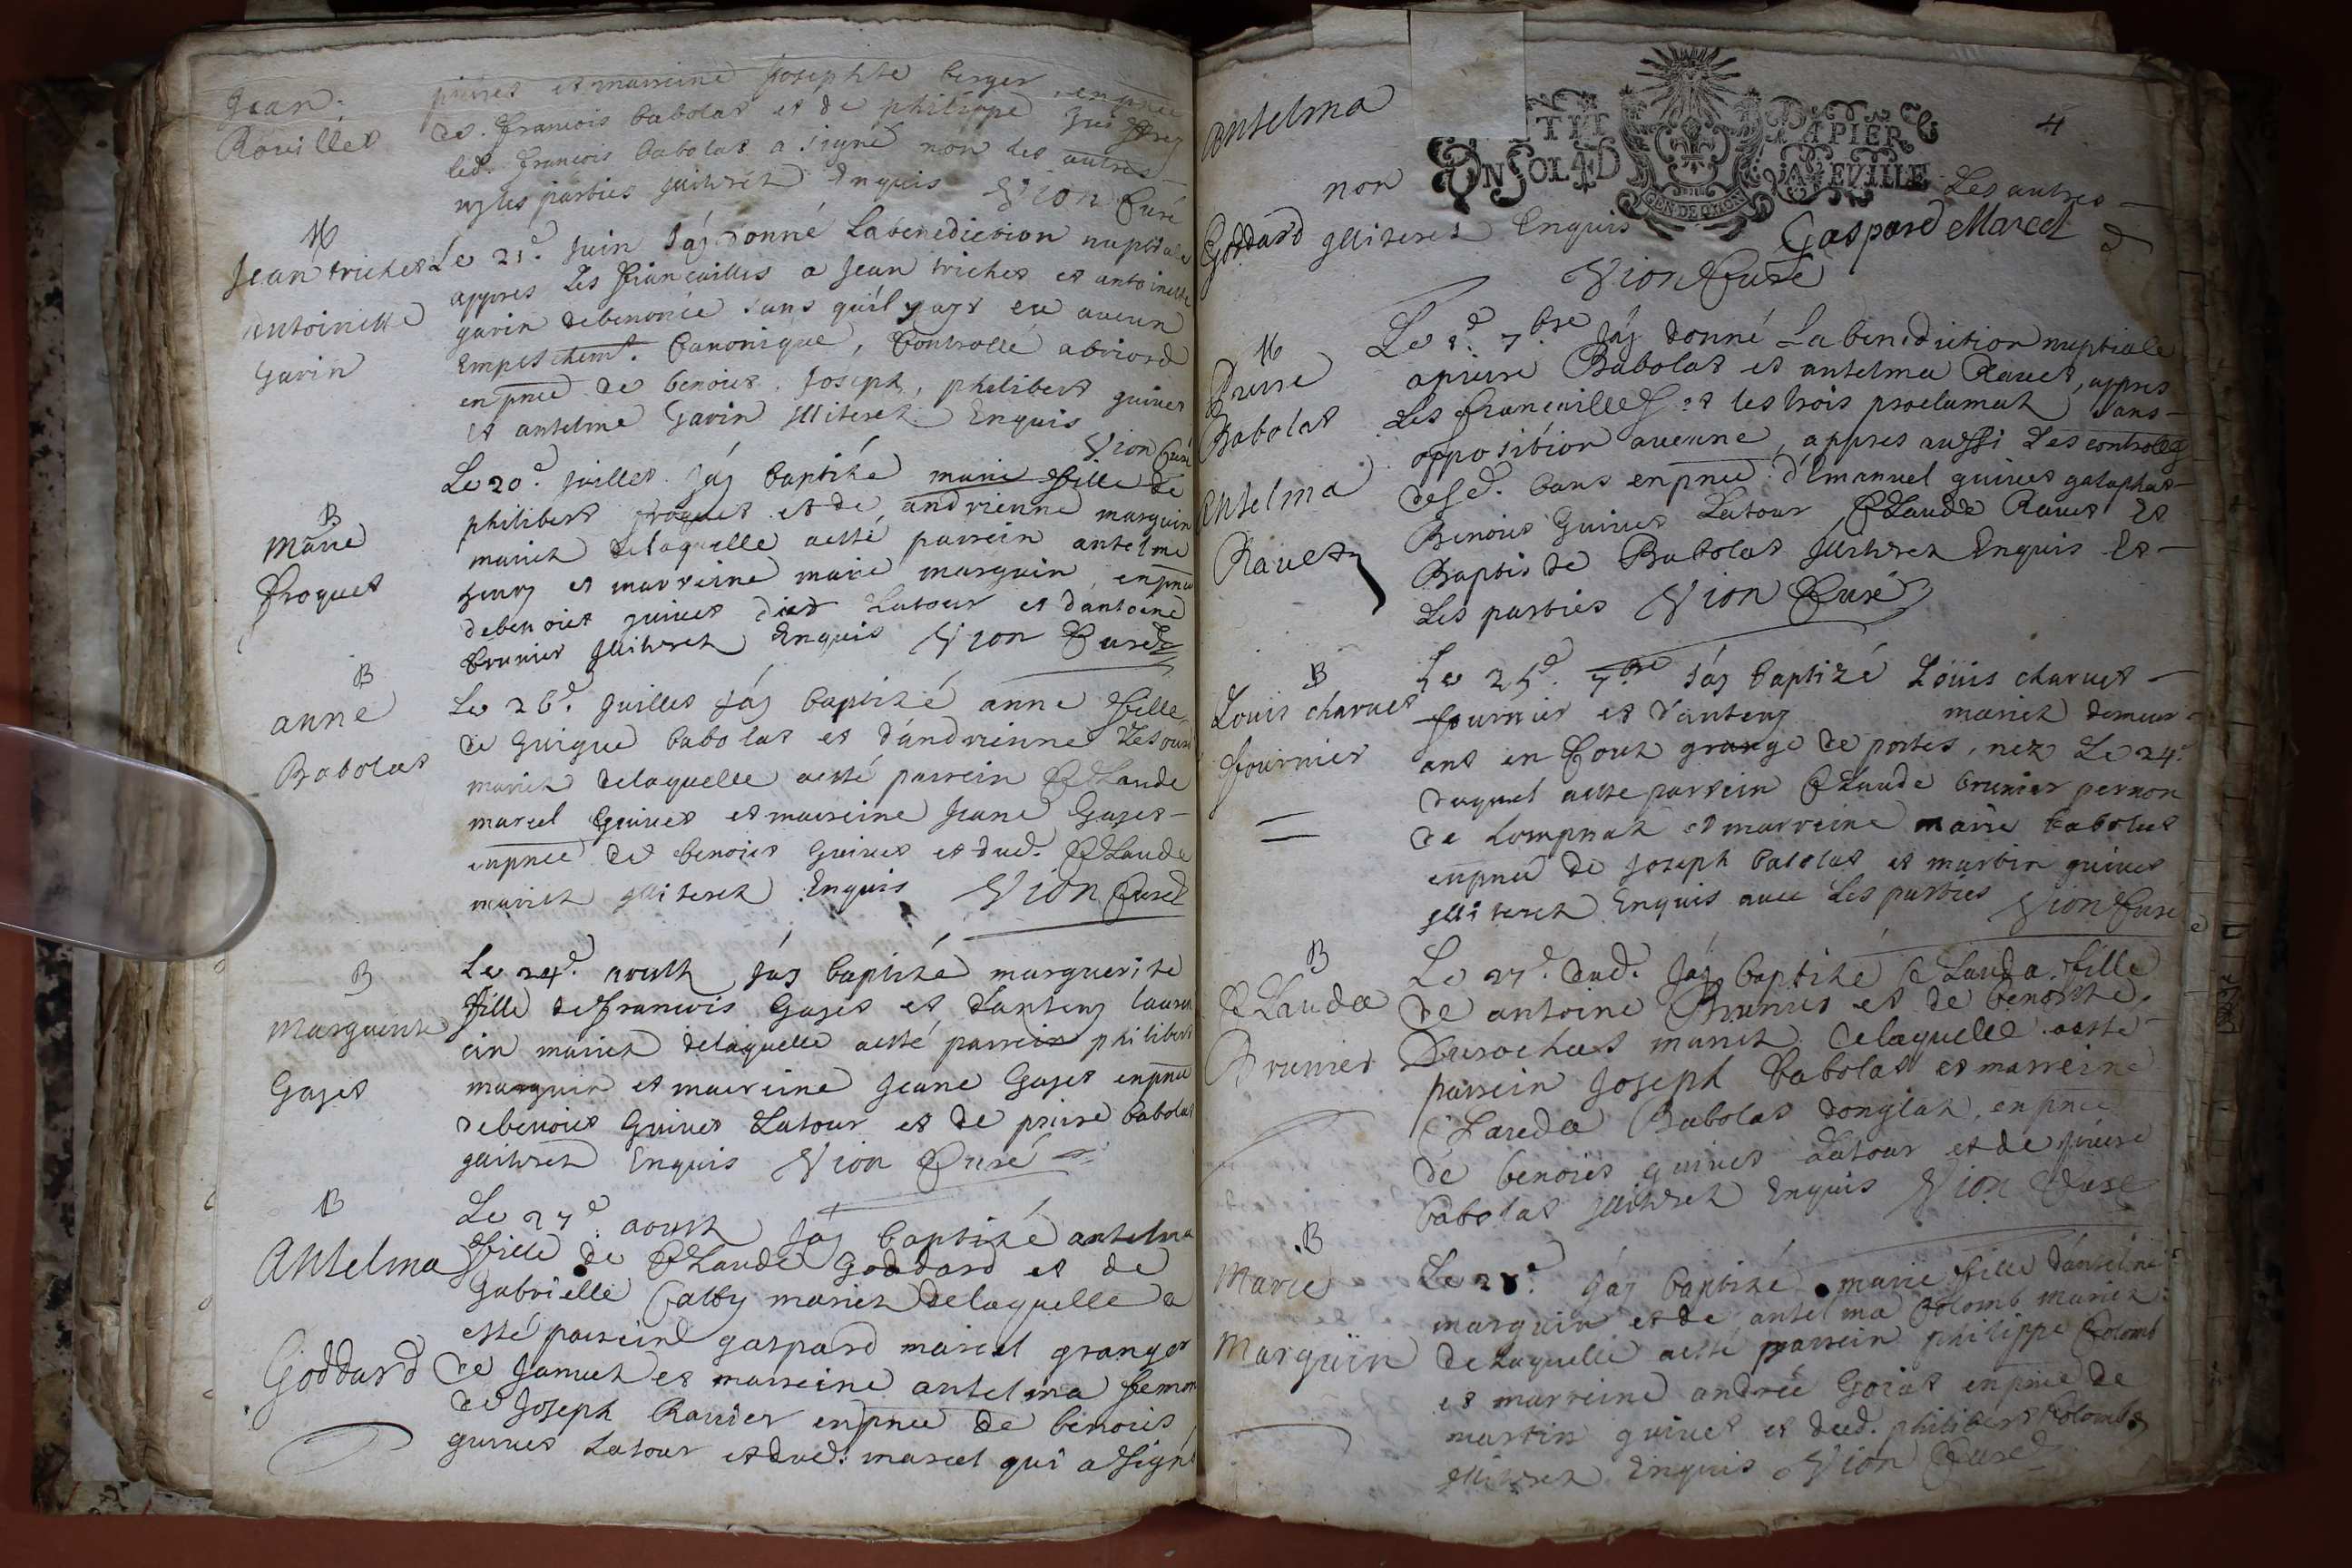 Jean
Rouillet
pierre et marreine Josephte berger, enpnce
de. francois babolat et de philippe
led. francois babolat a signé non les autres
ny les parties illiterez Enquis Vion Curé
M
Jean trichet
Antoinette
Gavin
Le 21e. Juin Jáy donné Labenediction nuptiale
appres Les fiancailles a Jean trichet et antoinette
gavin debenonée sans quil yayt eu aucun
Empeschemt. Canonique, Controllé
enpnce de benoict. Joseph, philibert guinet
et antelme Gavin illiterez. Enquis
Vion Curé
B
Marie
froquet
Le 20e. juillet Jáy baptizé marie fille de
philibert froquet et de andrienne marguin
mariez delaquelle aesté parrein antelme
et marreine marie marguin, enpnce
debenoict guinet dict Latour et dantoine
brunier illiterez Enquis Vion Curé
B
anne
Babolat
Le 26e. Juillet Jáy baptizé anne fille
de Guigue babolat et dándrienne
mariez delaquelle aesté parrein Claude
marcel Guinet et marreine Jeane Gajet
enpnce de benoict Guinet et dud. Claude
mariez illiterez Enquis Vion Curé
B
Marguerite
Gajet
Le 24e. aoust Jáy baptizé marguerite
fille defrancois Gajet et Danteny lauren
cin mariez delaquelle aesté parrein philibert
marguin et marreine Jeane Gajet enpnce
debenoict Guinet Latour et de pierre babolat
illiterez Enquis Vion Curé
B
Antelma
Goddard
Le 27e. aoust Jáy baptizé antelma
fille de Claude Goddard et de
Gabrielle Catty mariez delaquelle a
esté parrein gaspard marcel granger
de Jamet et marreine antelma femme
de Joseph Ravier enpnce de benoict
guinet Latour et dud. marcel qui a signé
antelma
Goddard
4
PAPIER
UN SOL 4 D
LA FEVILLE
GEN DE DIJON
non Les autres
illiterez Enquis Gaspard Marcel
Vion Curé
M
Pierre
Babolat
Antelma
Ravet
Le 8e. 7bre Jáy donné La benediction nuptiale
apierre Babolat et antelma Ravet, appres
Les fiancailles et les trois proclamat sans
opposition aucune, appres aussi Les controlles
desd. bans enpnce d'Emanuel guinet
Benoict Guinet Latour Claude Ravet Et
Baptiste Babolat illiterez Enquis Et
Les parties Vion Curé
B
Louis charvet
fournier
Le 25e. 7bre Jáy baptizé Louis charvet
fournier et Danteny mariez demeur
ant en Cour grange de portes, nez Le 24e
duquel aesté parrein Claude brunier pernon
de Lompnaz et marreine marie babolat
enpnce de Joseph babolat et martin guinet
illiterez Enquis avec Les parties Vion Curé
B
Clauda
Brunier
Le 27e. dud. Jáy baptizé Clauda fille
de antoine Brunier et de benoiste
Durochat mariez. delaquelle aesté
parrein Joseph babolat et marreine
Clauda Babolat donglaz, enpnce
de benoict guinet Latour et de pierre
babolat illiterez Enquis Vion Curé
B
Marie
Marguin
Le 28e. Jáy baptizé marie fille dántelme
marguin et de antelma Colomb mariez
delaquelle aesté parrein philippe Colomb
et marreine andrée Gojat enpnce de
martin guinet et dud. philibert Colomb
illiterez Enquis Vion Curé